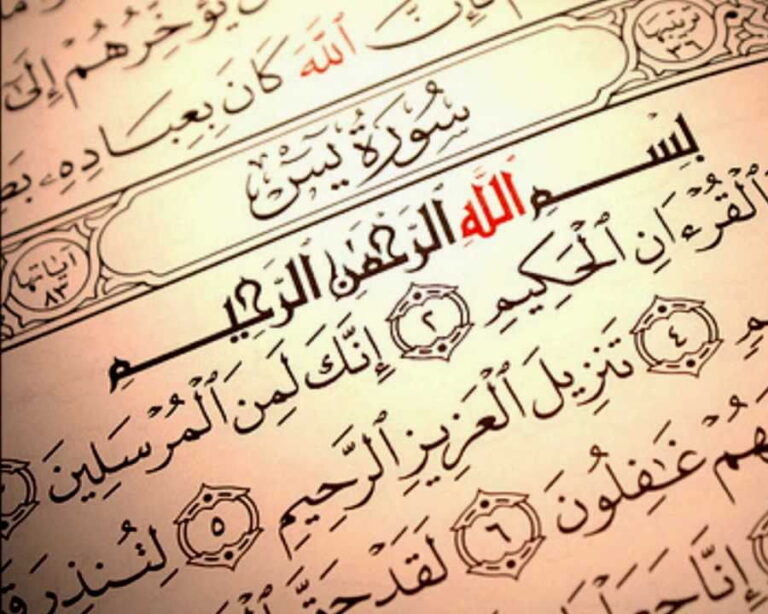 يُؤَخِّرُهُمْ إِلَىٰ
فَإِنَّ ٱللَّهَ كَانَ بِعِبَادِهِۦ
ترتيبها ٣٦
سُورَةُ يسٓ
آياتها ٨٣
بِسْمِ ٱللَّهِ ٱلرَّحْمَٰنِ ٱلرَّحِيمِ
ٱلْقُرْءَانِ ٱلْحَكِيمِ ٢ إِنَّكَ لَمِنَ ٱلْمُرْسَلِينَ
٤ تَنزِيلَ ٱلْعَزِيزِ ٱلرَّحِيمِ ٥ لِتُنذِرَ
غَٰفِلُونَ ٦ لَقَدْ حَقَّ
إِنَّا جَعَلْنَا